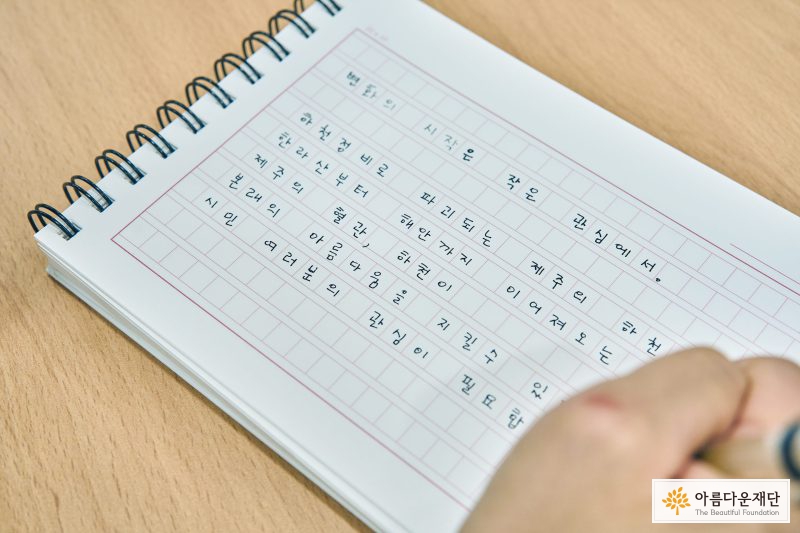 변화의 시작은 작은 관심에서.
하천정비로 파괴되는 제주의 하천
한라산부터 해안까지 이어져오는
제주의 혈관, 하천이
본래의 아름다움을 지킬수 있
시민 여러분의 관심이 필요합
아름다운재단
The Beautiful Foundation